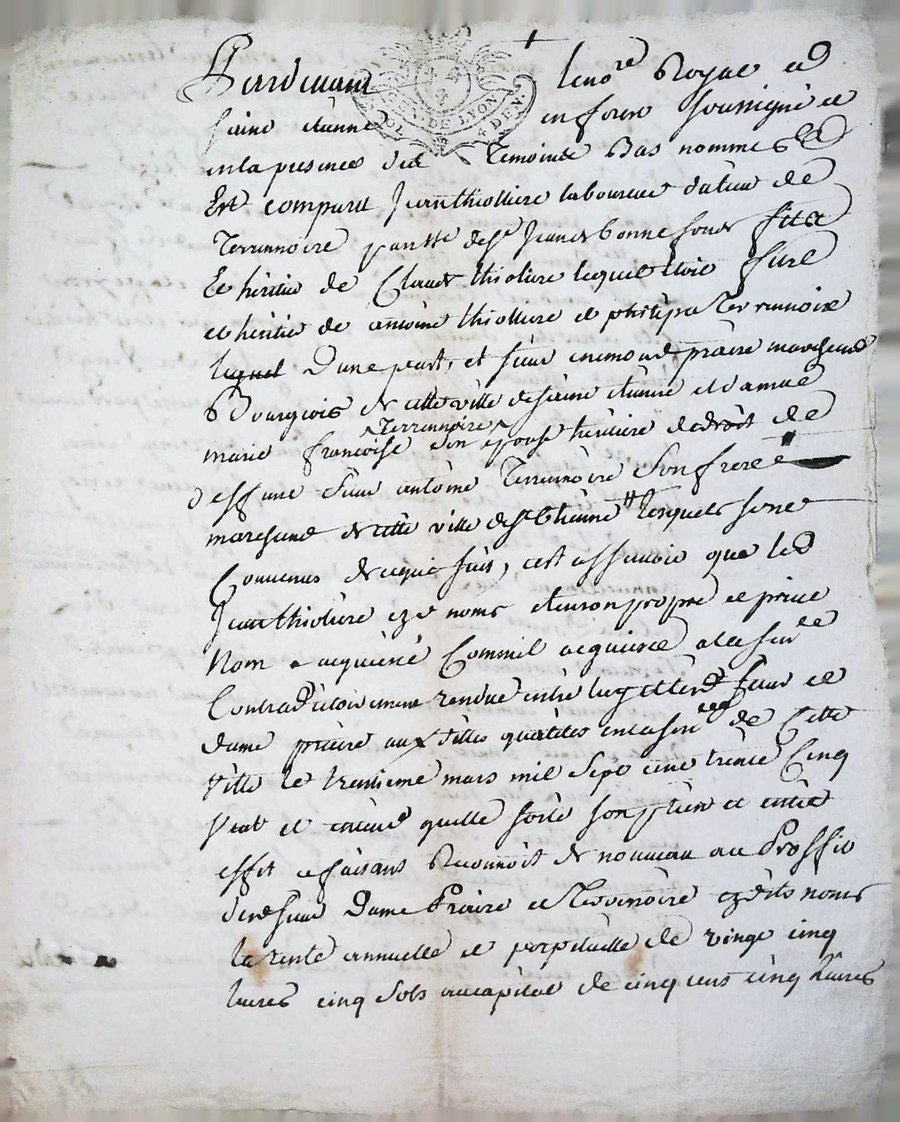 Pardevant le no.re Royal a
saint étienne en forest soussigné et
en la presence des temoins Bas nommés
Est comparu Jean thiolliere laboureur du lieu de
Terrennoire parr.sse de s.t Jean de bonnefond fils
Et héritié de Claude thioliere lequel étoit fils
et héritié de antoine thiolliere et philipa Terrennoire
lequel D'une part, et sieur enemond priere marchand
Bourgeois de cette ville de saint étienne et damlle
marie françoise Terrennoire son epouse héritiere de droit de
deffunt sieur antoine Terrennoire son frere
marchand de cette ville de s.t Ethienne lesquels sont
Convenus de ce qui suit, c'est assavoir que led
Jean thioliere ezd noms et en son propre et privé
Nom a acquiéscé Comme il acquiesce a la sentence
Contradictoirement rendue entre luy et lesd. sieur et
dame priere aux dittes qualités en la sen.cée de Cette
ville le trentieme mars mil sept cent trente Cinq
veut et entend quelle sorte son plein et entier
effet ce faisant Reconnoit de nouveau au Proffit
desd sieur Dame Priere et Terrenoire ezdits noms
la rente annuelle et perpétuelle de vingt cinq
livres cinq sols au capital de cinq cent cinq livres
GEN. DE LYON
4 DE